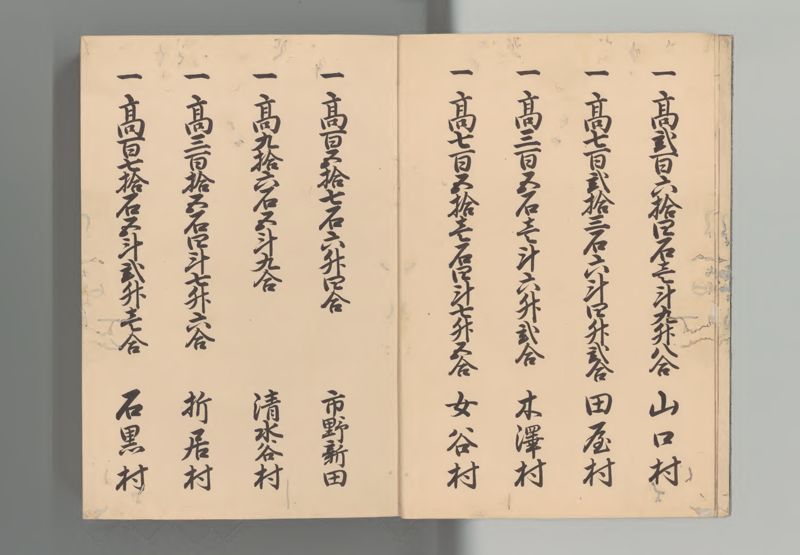 一 高弐百六拾四石壱斗九升八合 山口村
一 高七百弐拾三石六斗四升弐合 田屋村
一 高三百五石壱斗六升弐合 木澤村
一 高七百五拾壱石四斗七升五合 女谷村
一 高百五拾七石六升四合 市野新田
一 高九拾六石五斗九合 清水谷村
一 高三百拾五石四斗七升六合 折居村
一 高百七拾石五斗弐升壱合 石黒村